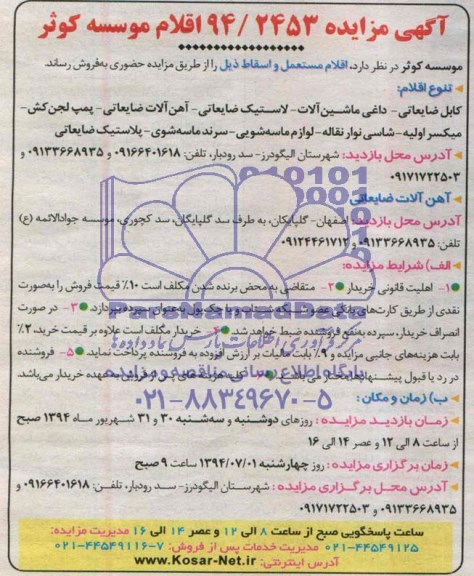 آگهی مزایده ۲۴۵۳ /۹۴ اقلام موسسه کوثر
موسسه کوثر در نظر دارد، اقلام مستعمل و اسقاط ذیل را از طریق مزایده حضوری به‌فروش رساند.
تنوع اقلام:
کابل ضایعاتی- داغی ماشین‌آلات- لاستیک ضایعاتی- آهن‌آلات ضایعاتی- پمپ لجن‌کش-
میکسر اولیه- شاسی نوار نقاله- لوازم ماسه‌شویی- سرند ماسه‌شوی- پلاستیک ضایعاتی
آدرس محل بازدید: شهرستان الیگودرز- سد رودبار، تلفن: ۰۹۱۶۶۴۰۱۶۱۸ و ۰۹۱۳۳۶۶۸۹۳۵ و
۰۹۱۷۱۷۲۲۵۰۳
آهن آلات ضایعاتی
آدرس محل بازدید: اصفهان- گلپایگان، به طرف سد گلپایگان، سد کچوری، موسسه جوادالائمه (ع)
تلفن: ۰۹۱۳۳۶۶۸۹۳۵ و ۰۹۱۲۴۴۶۱۷۱۲
الف) شرایط مزایده:
۱- اهلیت قانونی خریدار ۲- متقاضی به محض برنده شدن مکلف است ۱۰٪ قیمت فروش را به‌صورت
نقدی از طریق کارت‌های بانکی عضو شبکه شتاب و یا چک پول به‌عنوان سپرده بپردازد. ۳- در صورت
انصراف خریدار، سپرده به‌نفع فروشنده ضبط خواهد شد. ۴- خریدار مکلف است علاوه بر قیمت خرید، ۲٪
بابت هزینه‌های جانبی مزایده و ۹٪ بابت مالیات بر ارزش افزوده به فروشنده پرداخت نماید. ۵- فروشنده
در رد یا قبول پیشنهادها مختار می‌باشد. ۶- کلیه هزینه‌های پس از فروش به‌عهده خریدار می‌باشد.
ب) زمان و مکان:
زمان بازدید مزایده: روزهای دوشنبه و سه‌شنبه ۳۰ و ۳۱ شهریور ماه ۱۳۹۴ صبح
از ساعت ۸ الی ۱۲ و عصر ۱۴ الی ۱۶
زمان برگزاری مزایده: روز چهارشنبه ۱۳۹۴/۰۷/۰۱ ساعت ۹ صبح
آدرس محل برگزاری مزایده: شهرستان الیگودرز- سد رودبار، تلفن: ۰۹۱۶۶۴۰۱۶۱۸ و
۰۹۱۳۳۶۶۸۹۳۵ و ۰۹۱۷۱۷۲۲۵۰۳
ساعت پاسخگویی صبح از ساعت ۸ الی ۱۲ و عصر ۱۴ الی ۱۶ مدیریت مزایده:
۰۲۱-۴۴۵۴۹۱۲۵ مدیریت خدمات پس از فروش: ۷-۰۲۱-۴۴۵۴۹۱۱۶
آدرس اینترنتی: www.Kosar-Net.ir
ParsNamadData
مرکز فرآوری اطلاعات پارس نماد داده‌ها
پایگاه اطلاع رسانی مناقصه و مزایده
۰۲۱-۸۸۳۴۹۶۷۰-۵